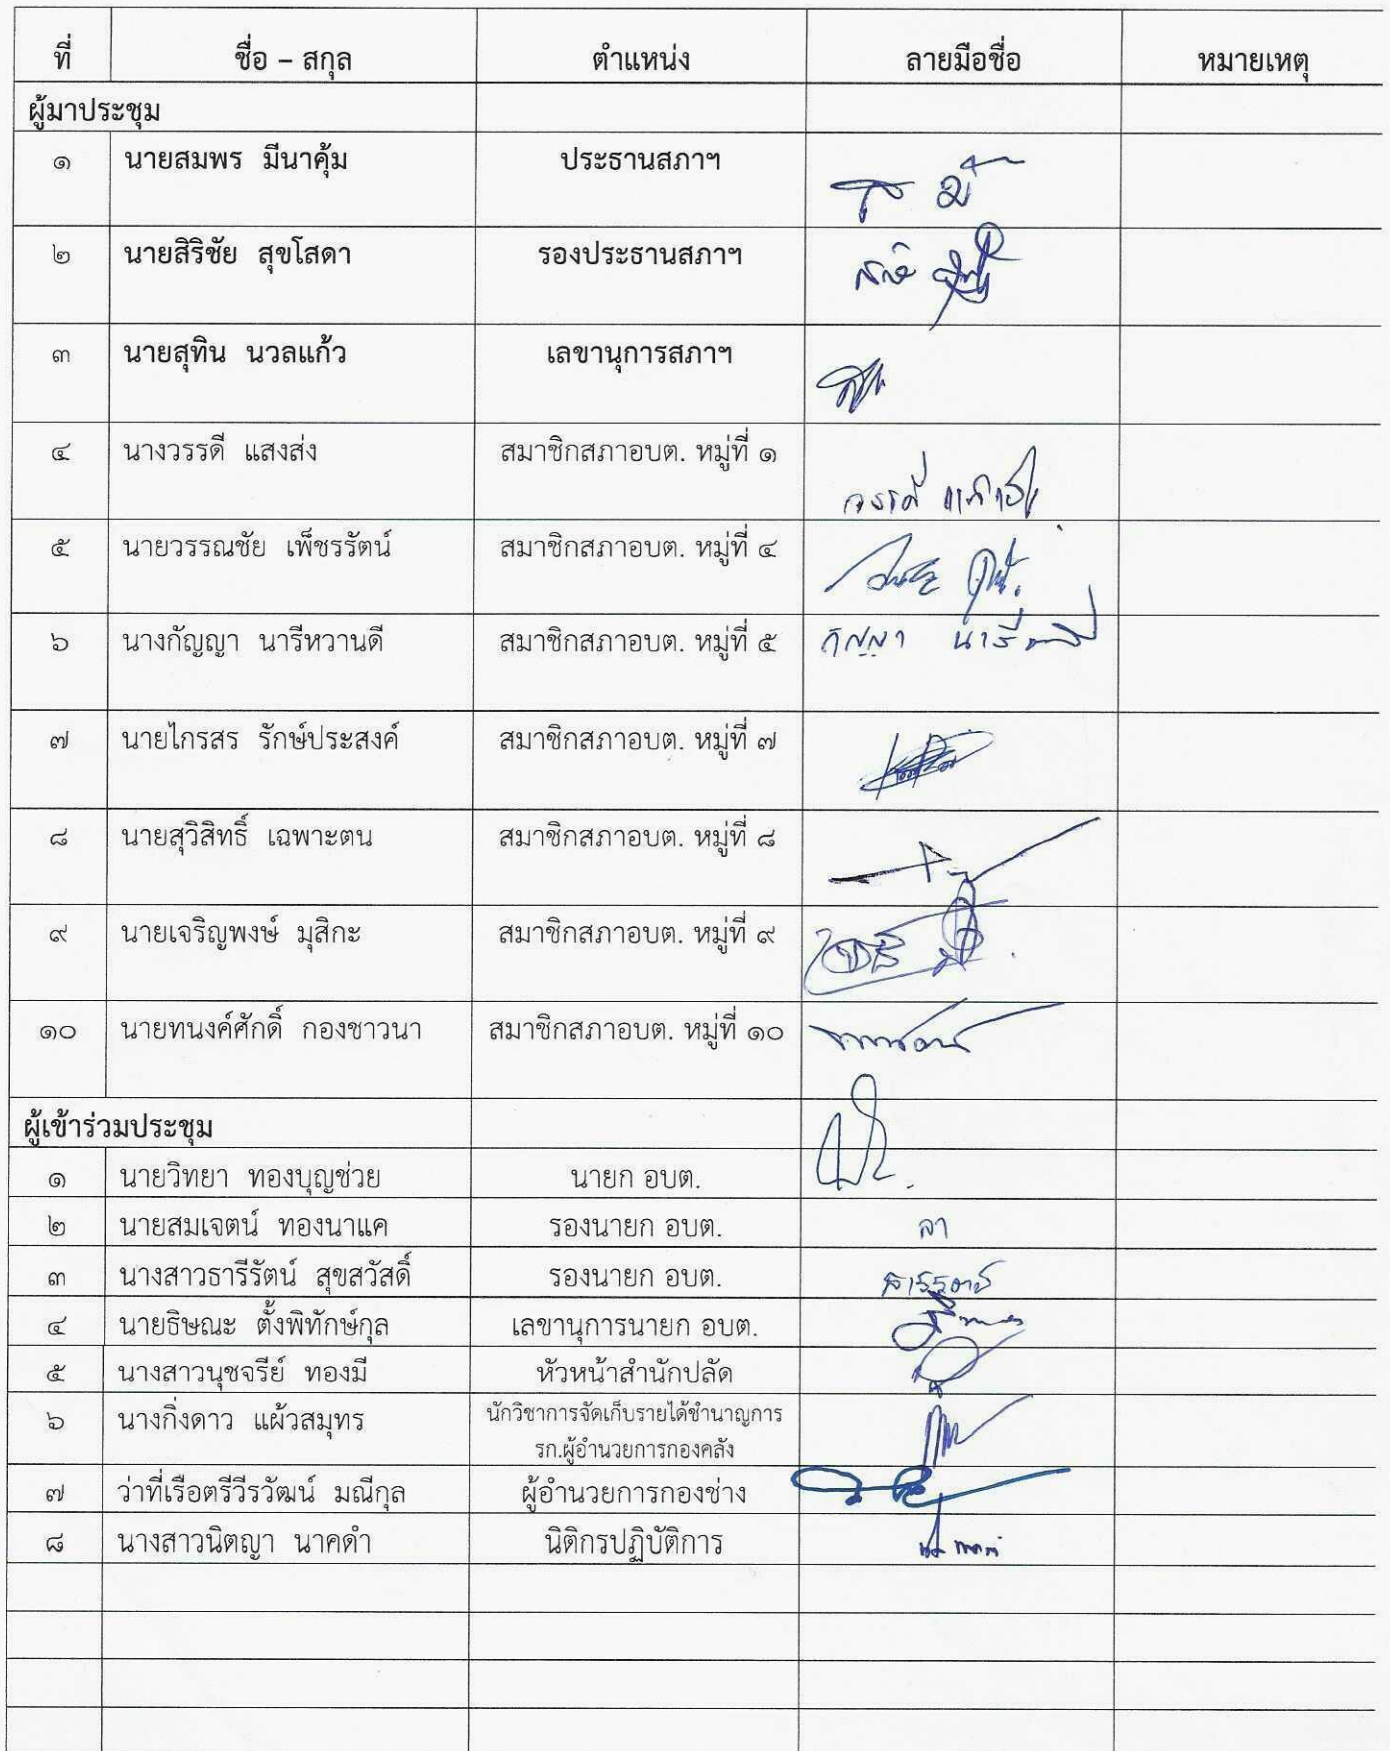 ที่ ชื่อ – สกุล ตำแหน่ง ลายมือชื่อ หมายเหตุ
ผู้มาประชุม
๑ นายสมพร มีนาคุ้ม ประธานสภาฯ
๒ นายสิริชัย สุขโสดา รองประธานสภาฯ
๓ นายสุทิน นวลแก้ว เลขานุการสภาฯ
๔ นางวรรดี แสงส่ง สมาชิกสภาอบต. หมู่ที่ ๑
๕ นายวรรณชัย เพ็ชรรัตน์ สมาชิกสภาอบต. หมู่ที่ ๔
๖ นางกัญญา นารีหวานดี สมาชิกสภาอบต. หมู่ที่ ๕ กัญญา
๗ นายไกรสร รักษ์ประสงค์ สมาชิกสภาอบต. หมู่ที่ ๗
๘ นายสุวิสิทธิ์ เฉพาะตน สมาชิกสภาอบต. หมู่ที่ ๘
๙ นายเจริญพงษ์ มุสิกะ สมาชิกสภาอบต. หมู่ที่ ๙
๑๐ นายทนงค์ศักดิ์ กองชาวนา สมาชิกสภาอบต. หมู่ที่ ๑๐
ผู้เข้าร่วมประชุม
๑ นายวิทยา ทองบุญช่วย นายก อบต.
๒ นายสมเจตน์ ทองนาแค รองนายก อบต. ลา
๓ นางสาวธารีรัตน์ สุขสวัสดิ์ รองนายก อบต.
๔ นายธิษณะ ตั้งพิทักษ์กุล เลขานุการนายก อบต.
๕ นางสาวนุชจรีย์ ทองมี หัวหน้าสำนักปลัด
๖ นางกิ่งดาว แผ้วสมุทร นักวิชาการจัดเก็บรายได้ชำนาญการ
รก.ผู้อำนวยการกองคลัง
๗ ว่าที่เรือตรีวีรวัฒน์ มณีกุล ผู้อำนวยการกองช่าง
๘ นางสาวนิตญา นาคดำ นิติกรปฏิบัติการ